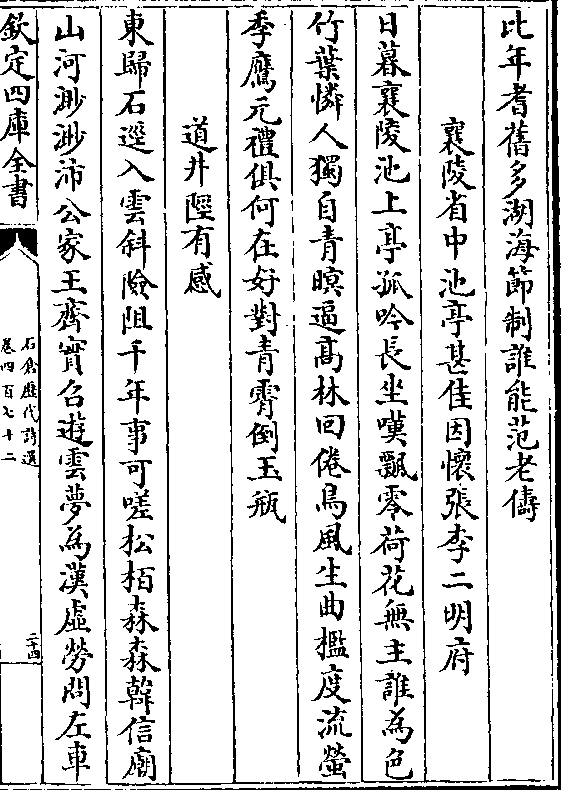 比年耆舊多湖海節制誰能范老儔
襄陵省中池亭甚佳因懷張李二明府
日暮襄陵池上亭孤吟長坐嘆飄零荷花無主誰為色
竹葉憐人獨自青暝逼髙林回倦鳥風生曲檻度流螢
季鷹元禮俱何在好對青霄倒玉瓶
道井陘有感
東歸石逕入雲斜險阻千年事可嗟松栢森森韓信廟
山河渺渺沛公家王齊實召遊雲夢為漢虛勞問左車
欽定四庫全書
石倉歷代詩選
卷四百七十二
二十四